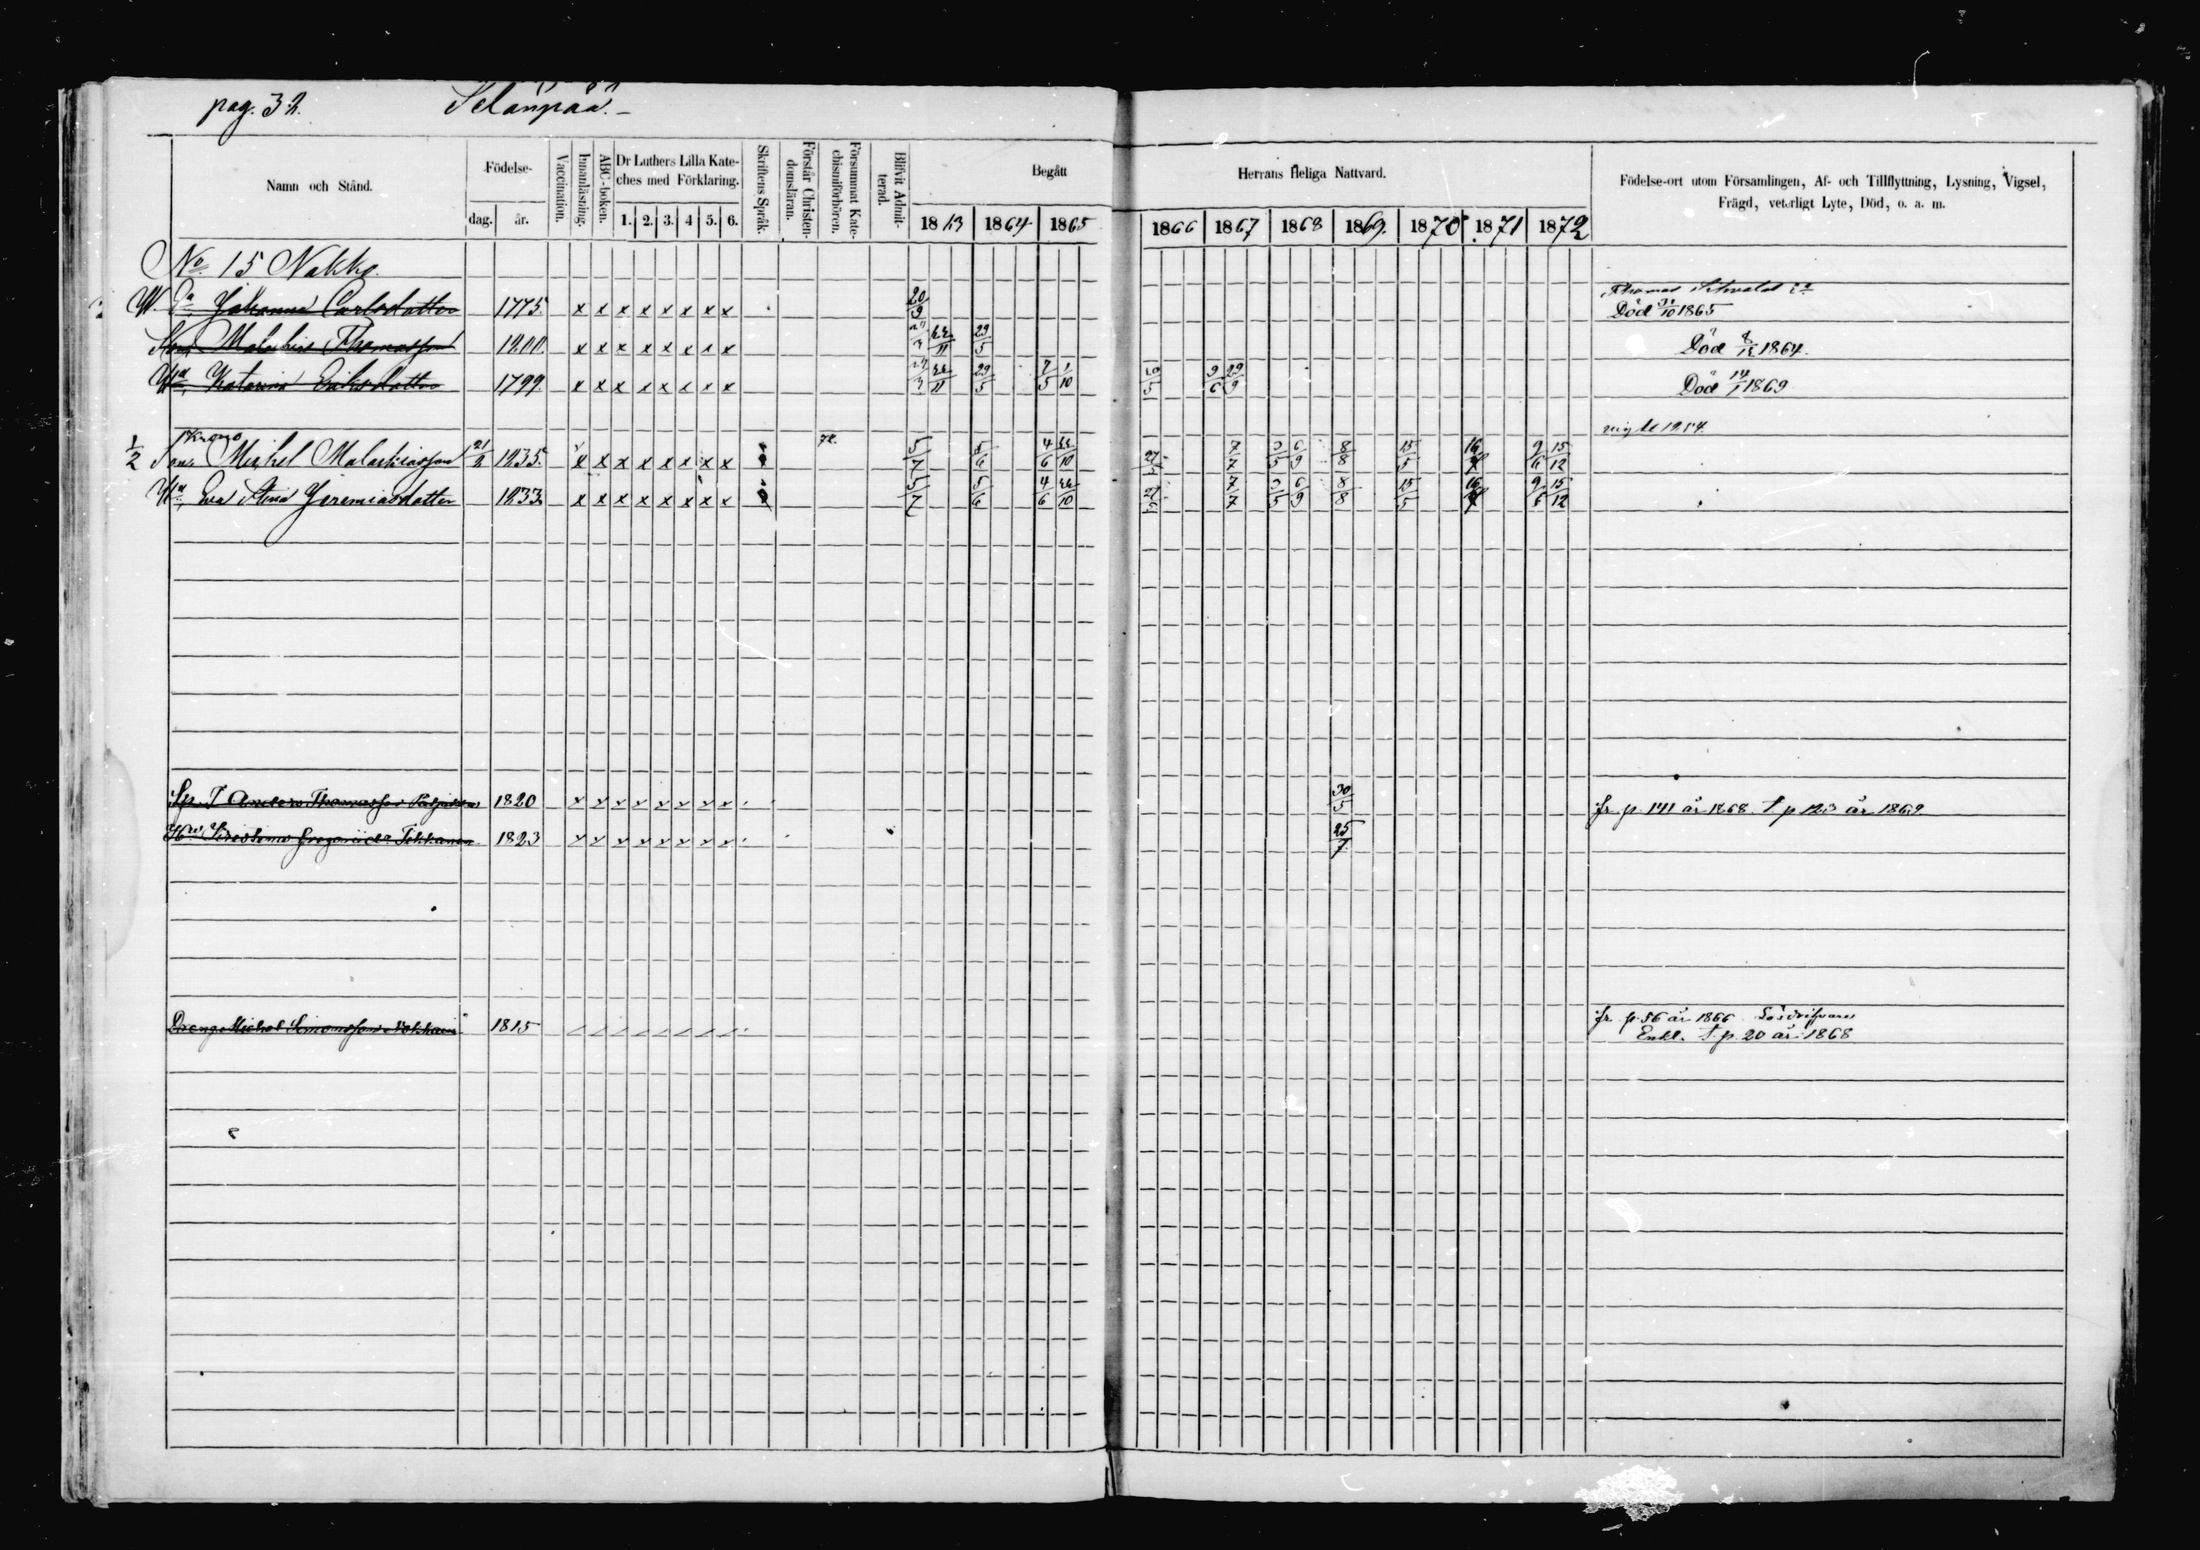 pag. 32. Selänpää. –
Namn och Stånd. Födelse- dag. år. Vaccination. Innanläsning. ABC-boken. Dr Luthers Lilla Kateches med Förklaring. 1. 2. 3. 4 5. 6. Skriftens Språk. Förstår Christendomsläran. Försummat Katechismiförhören. Blifvit Admitterad. Begått Herrans Heliga Nattvard. Födelse-ort utom Församlingen, Af- och Tillflyttning, Lysning, Vigsel,
Frägd, veterligt Lyte, Död, o. a. m.
1863 1864 1865 1866 1867 1868 1869. 1870 1871 1872
No. 15 Nakko.
W. Johanna Carlsdotter 1775. x x x x x x x x 20/9 Thomas
Död 31/10 1865
Son Malachias Thomasson 1800. x x x x x x x x 29/5 Död 1864.
Hu Katarina Eriksdotter 1799. x x x x x x x x 29/5 7/5 1/10 20/5 9/6 29/9 Död 14/1 1869
1/2 Son Michel Malachiasson 21/2 1835. x x x x x x x 72. 5/7 5/6 4/6 22/10 27/5 7/7 3/5 6/9 8/8 15/5 9/6 15/12
Hu Eva Stina Jeremiasdotter 1833 x x x x x x x x 5/7 5/6 4/6 22/10 27/5 7/7 3/5 6/9 8/8 15/5 9/6 15/12
Anders Thomasson 1820 30/5 fr p. 141 år 1868. t p 123 år 1869.
Hu Christina Gregorii dr 1823 25/7
Dreng Michel Simonsson 1815 fr p. 56 år 1866
Enkl. t p. 20 år 1868